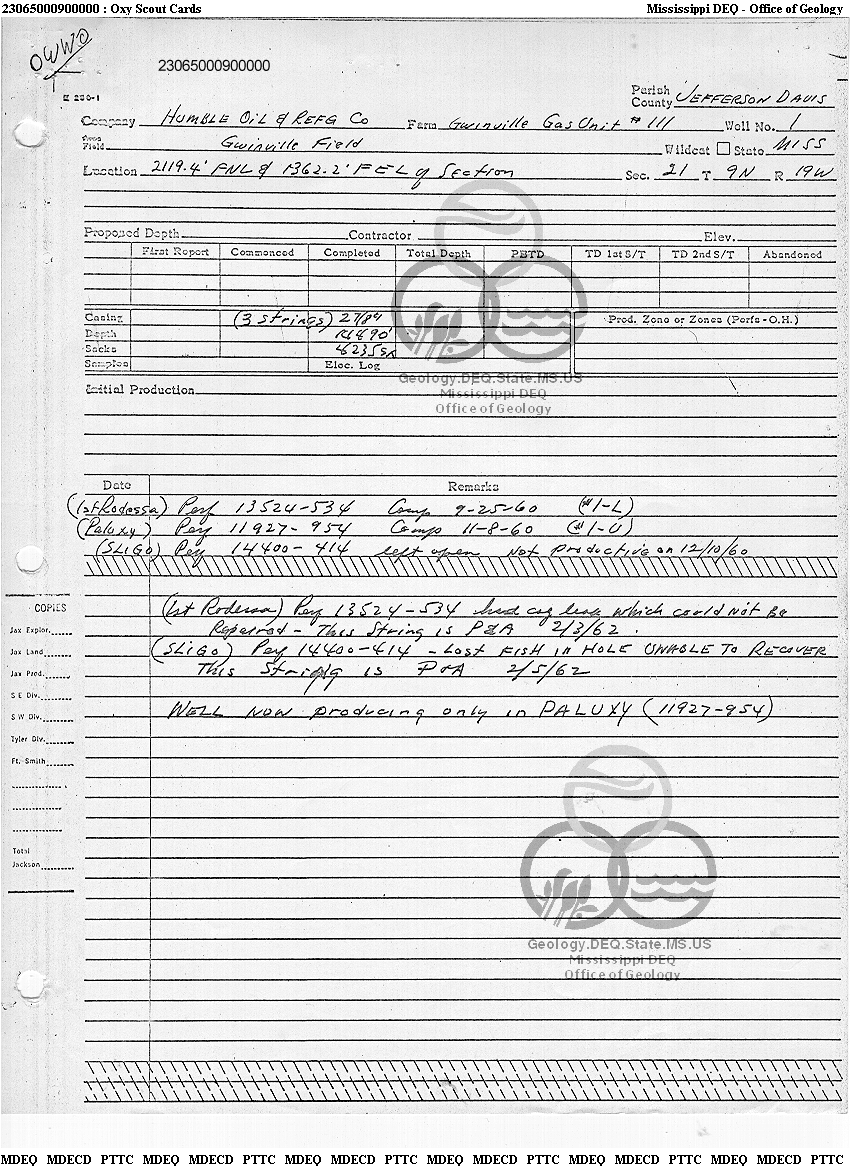 23065000900000 : Oxy Scout Cards Mississippi DEQ - Office of Geology
OWWO
23065000900000
Parish
County JEFFERSON DAVIS
Company HUMBLE OIL & REFG CO Farm Gwinville Gas Unit #111 Well No. 1
Field Gwinville Field Wildcat State MISS
Location 2119.4' FNL & 1362.2' FEL of Section Sec. 21 T 9N R 19W
Proposed Depth Contractor Elev.
First Report Commenced Completed Total Depth PBTD TD 1st S/T TD 2nd S/T Abandoned
Casing (3 strings) 27/8" Prod. Zone or Zones (Perfs - O.H.)
Depth 14490'
Sacks 4235sx
Samples Elec. Log
Geology.DEQ.State.MS.US
Mississippi DEQ
Office of Geology
Initial Production
Date Remarks
(1st Rodessa) Perf 13524-534 Comp 9-25-60 (#1-L)
(Paluxy) Perf 11927-954 Comp 11-8-60 (#1-U)
(SLIGO) Perf 14400-414 left open Not productive on 12/10/60
COPIES
(1st Rodessa) Perf 13524-534 had csg leak which could Not Be
Jax Explor. Repaired - This String is P&A 2/3/62.
Jax Land (SLIGO) Perf 14400-414 - Lost FISH IN HOLE UNABLE TO RECOVER
Jax Prod. This String is P&A 2/5/62
S E Div.
S W Div. WELL NOW producing only in PALUXY (11927-954)
Tyler Div.
Ft. Smith
Total
Jackson
Geology.DEQ.State.MS.US
Mississippi DEQ
Office of Geology
MDEQ MDECD PTTC MDEQ MDECD PTTC MDEQ MDECD PTTC MDEQ MDECD PTTC MDEQ MDECD PTTC MDEQ MDECD PTTC